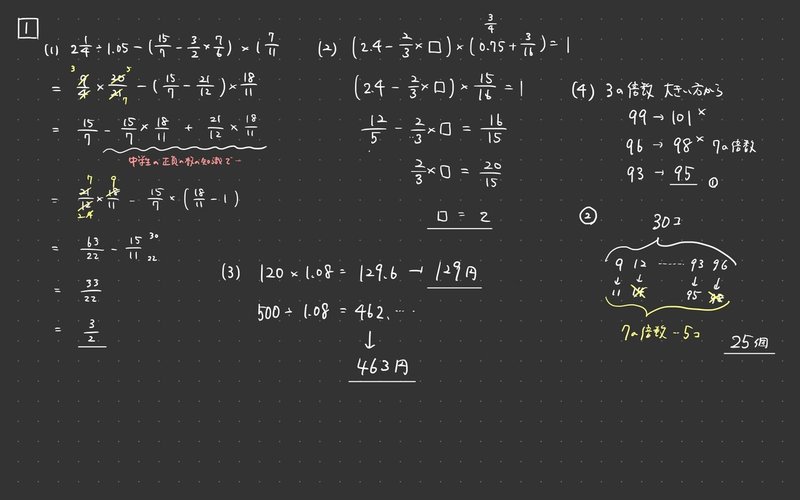 1
(1) 2 1/4 ÷ 1.05 − (15/7 − 3/2 × 7/6) × 1 7/11
= 9/4 × 20/21 − (15/7 − 21/12) × 18/11
3 5 7
= 15/7 − 15/7 × 18/11 + 21/12 × 18/11
中学生の正負の数の知識で…
= 21/12 × 18/11 − 15/7 × (18/11 − 1)
7 9
= 63/22 − 15/11 30/22
= 33/22
= 3/2
(2) (2.4 − 2/3 × □) × (0.75 + 3/16) = 1
3/4
(2.4 − 2/3 × □) × 15/16 = 1
12/5 − 2/3 × □ = 16/15
2/3 × □ = 20/15
□ = 2
(3) 120 × 1.08 = 129.6 → 129円
500 ÷ 1.08 = 462.…
↓
463円
(4) 3の倍数 大きい方から
99 → 101 ×
96 → 98 × 7の倍数
93 → 95 ①
② 30コ
9 12 …… 93 96
↓ ↓ ↓ ↓
11 14 95 98
7の倍数…5コ
25個